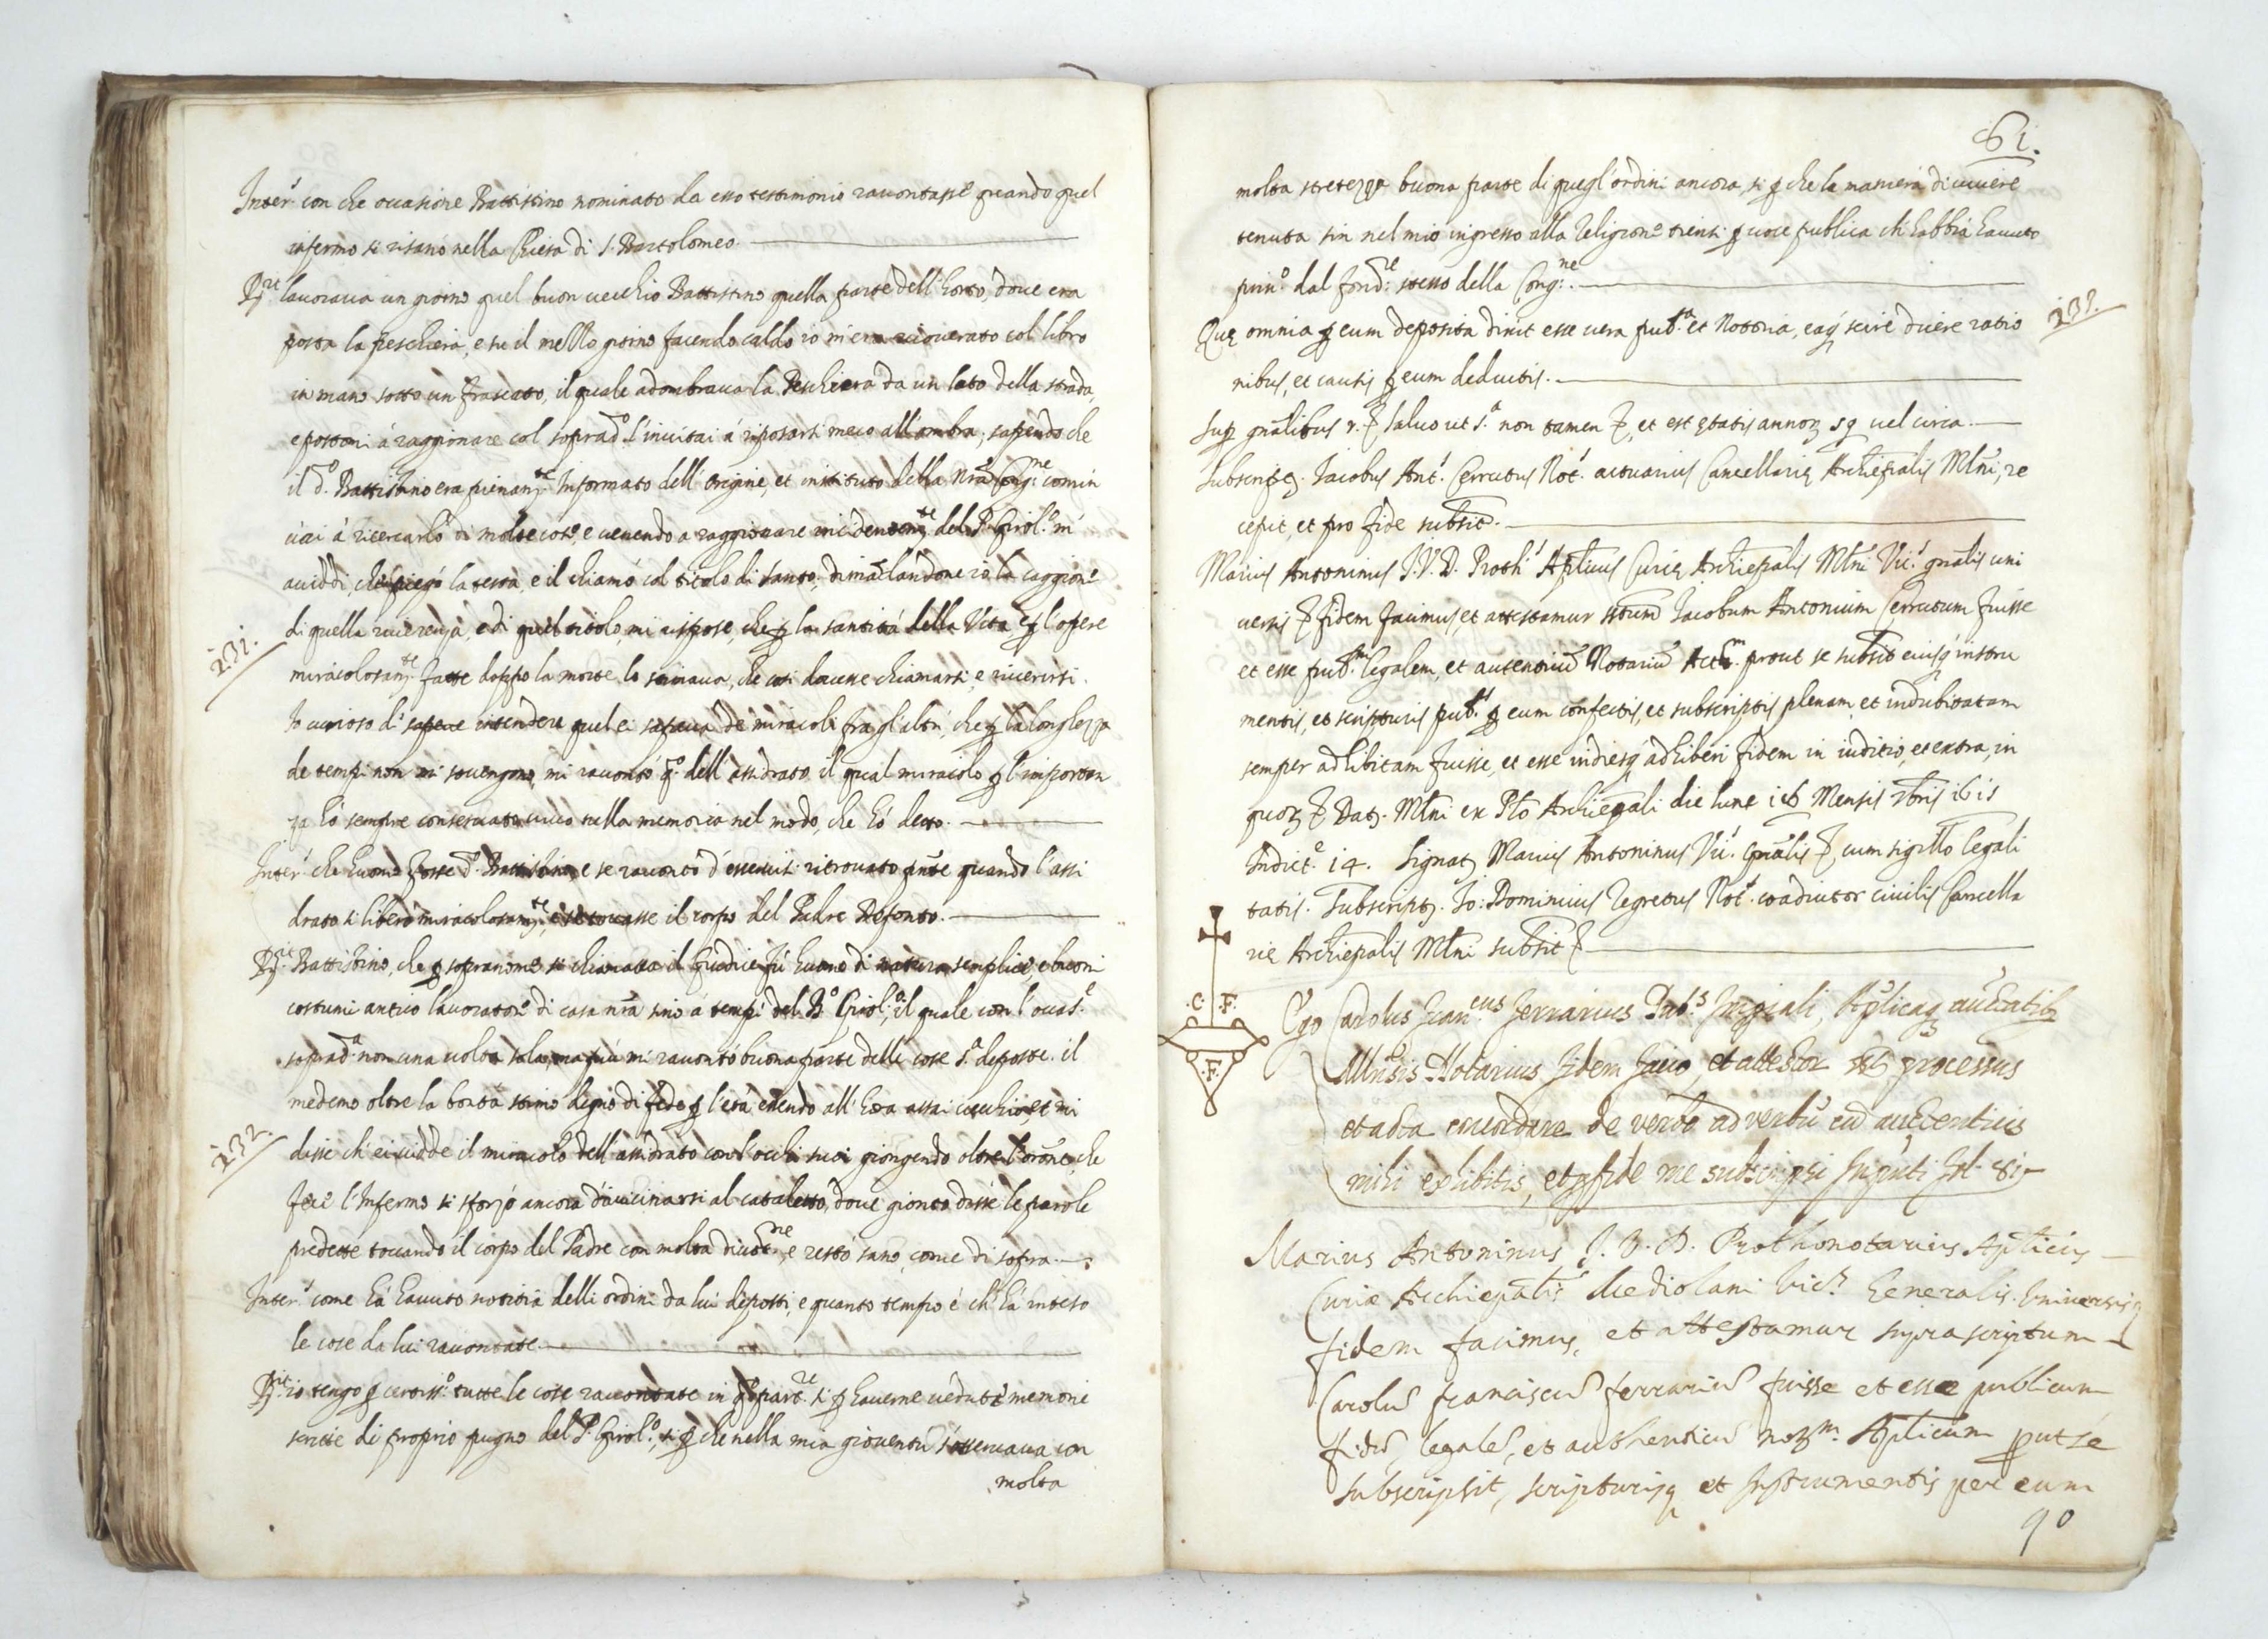 Inter.^t con che occasione Battistino nominato da esso testimonio raccontasse quando quel
infermo si risanò nella Chiesa di S. Bartolomeo.
R.^it lavorava un giorno quel buon vecchio Battistino quella parte dell'horto, dove era
posta la peschiera, e su il mezzo giorno facendo caldo io m'era ricoverato col libro
in mano sotto un frascato, il quale adombrava la Peschiera da un lato della strada,
e postomi á raggionare col soprad.^o l'invitai á riposarsi meco all'ombra, sapendo che
il d.^o Battistino era pienam.^te Informato dell'origine, et instituto della Nrã Cong.^ne comin
ciai á ricercarlo di molte cose, e venendo a raggionare incidentem.^te del P. Girol.^o m'
aviddi che piegò la testa, e il chiamò col titolo di santo, dimãdandone io la caggione
di quella riverenza, e di quel titolo, mi rispose, che p la santità della Vita e p l'opere
131.
miracolosam.^te fatte doppo la morte, lo stimava, che così dovesse chiamarsi e riverirsi.
Io curioso di sapere intendere quel ei sapeva de miracoli fra gl'altri, che p la longhezza
de tempi non mi sovengono, mi raccontò q.^o dell'assidrato, il qual miracolo p l'importan
za hò sempre conservato vivo nella memoria nel modo, che hò detto.
Inter.^t che huomo fosse d.^o Battistino, e se raccontò d'essersi ritrovato pñte quando l'assi
drato si liberò miracolosam.^te, e se toccasse il corpo del Padre Defonto.
R.^it Battistino, che p sopranome si chiamava il Giudice fú huomo di natura semplice, e buoni
costumi antico lavoratore di casa nrã sino á tempi del B.^o Girol.^o, il quale con l'ocas.^e
soprad.^a non una volta sola, ma più mi raccontò buona parte delle cose s.^a deposte. il
medemo oltre la bontà stimo degno di fede p l'età essendo all'hora assai vecchio, et mi
132.
disse ch'ei vidde il miracolo dell'assidrato con l'occhi suoi giongendo oltre l'orõne, che
fece l'Infermo si sforzò ancora d'avicinarsi al cataletto, dove gionto disse le parole
predette toccando il corpo del Padre con molta divot.^ne, e restò sano, come di sopra.
Inter.^t come hà havuto notitia delli ordini da lui deposti, e quanto tempo è ch'hà inteso
le cose da lui raccontate.
R.^it io tengo p certiss.^o tutte le cose raccontate in q.^o part.^re si p haverne vedute memorie
scritte di proprio pugno del P. Girol.^o, si p che nella mia gioventù s'osservava con
molta
61.
molta stretezza buona parte di quegl'ordini ancora, si p che la maniera di vivere
tenuta sin nel mio ingresso alla Religione tiensi p voce publica ch'habbia havuto
prin.^o dal fond.^re stesso della Cong.^ne.
133.
Quę omnia p eum deposita dixit esse vera pub.^a et Notoria, eaq scire dicere ratio
nibus, et causis p eum deductis.
Sup gnãlibus r. salvo ut s.^a non tamen, et est ętatis annoꝝ 59 vel circa.
Subscript. Iacobus Ant.^s Cerrutus Not.^s actuarius Cancellarię Archiepalis Mlni, re
cepit, et pro fide subsit.
Marius Antoninus J.V.D. Proth.^s Aplicus Curię Archiepalis Mlni Vic.^s gnãlis uni
versis fidem facimus, et attestamur sstum Iacobum Antonium Cerrutum fuisse
et esse pub.^m legalem, et autenticũ Notariũ Act.^m prout se subsit eiusq instru
mentis, et scripturis pub.^s p eum confectis, et subscriptis plenam et indubitatam
semper adhibitam fuisse, et esse indiesq adhiberi fidem in iuditio, et extra, in
quoꝝ Dat. Mlni ex Plo Archiepali die lune 16 Mensis 9bris 1615
Indict.^e 14. Signat. Marius Antoninus Vic. Gnãlis, cum sigillo legali
tatis. Subscript. Io: Dominicus Regretus Not.^s coadiutor civilis Cancella
rie Archiepalis Mlni subsit
.C. .F.
.F.
Ego Carolus Fran.^cus Ferrarius Pub.^s Imperiali, Aplicaq auctatib
Mlnsis Notarius fidem facio, et attestor processus
et acta concordare de verbo ad verbũ cũ autenticis
mihi exhibitis, et p fide me subscripsi
Marius Antoninus J.V.D. Prothonotarius Aplicus
Curiæ Archiepalis Mediolani Vic.^s Generalis Universis
fidem facimus, et attestamur suprascriptum
Carolũ Franciscũ Ferrariũ fuisse et esse publicum
fidũ, legalẽ, et authenticũ Aplicum put se
subscripsit, scripturisq et Instrumentis per eum
90